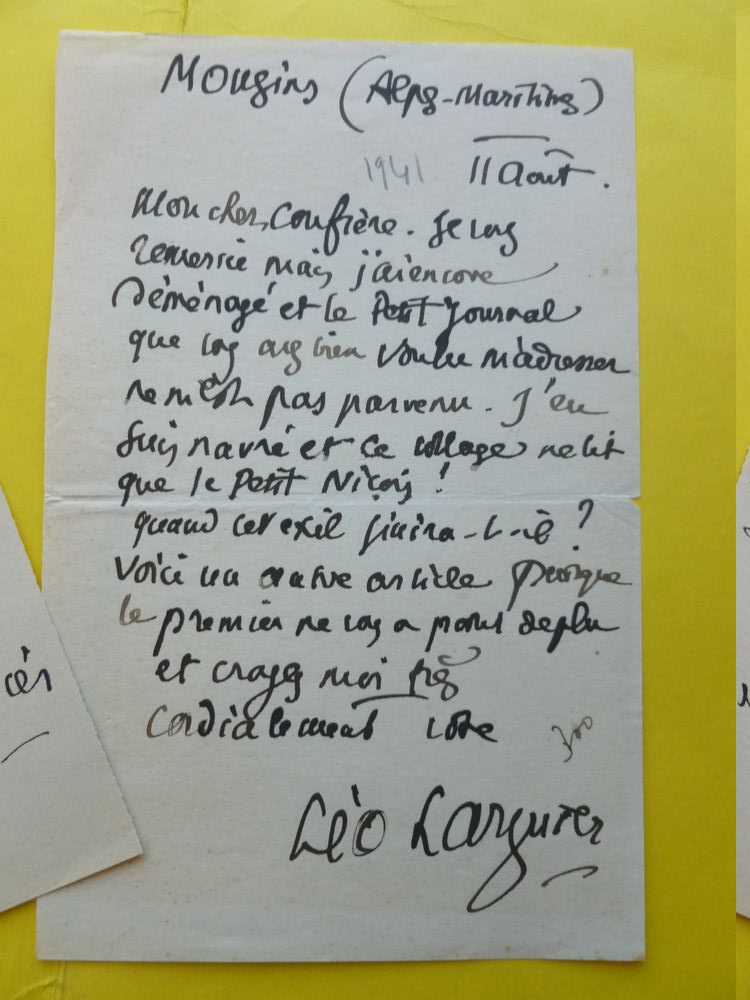 Mougins (Alpes-Maritimes)
1941 11 Août.
Mon cher Confrère. Je vous
remercie mais j'ai encore
déménagé et le Petit Journal
que vous avez bien voulu m'adresser
ne m'est pas parvenu. J'en
suis navré et ce village ne lit
que le Petit Niçois !
quand cet exil finira-t-il ?
Voici un autre article puisque
le premier ne vous a point deplu
et croyez moi très
Cordialement votre
Léo Larguier